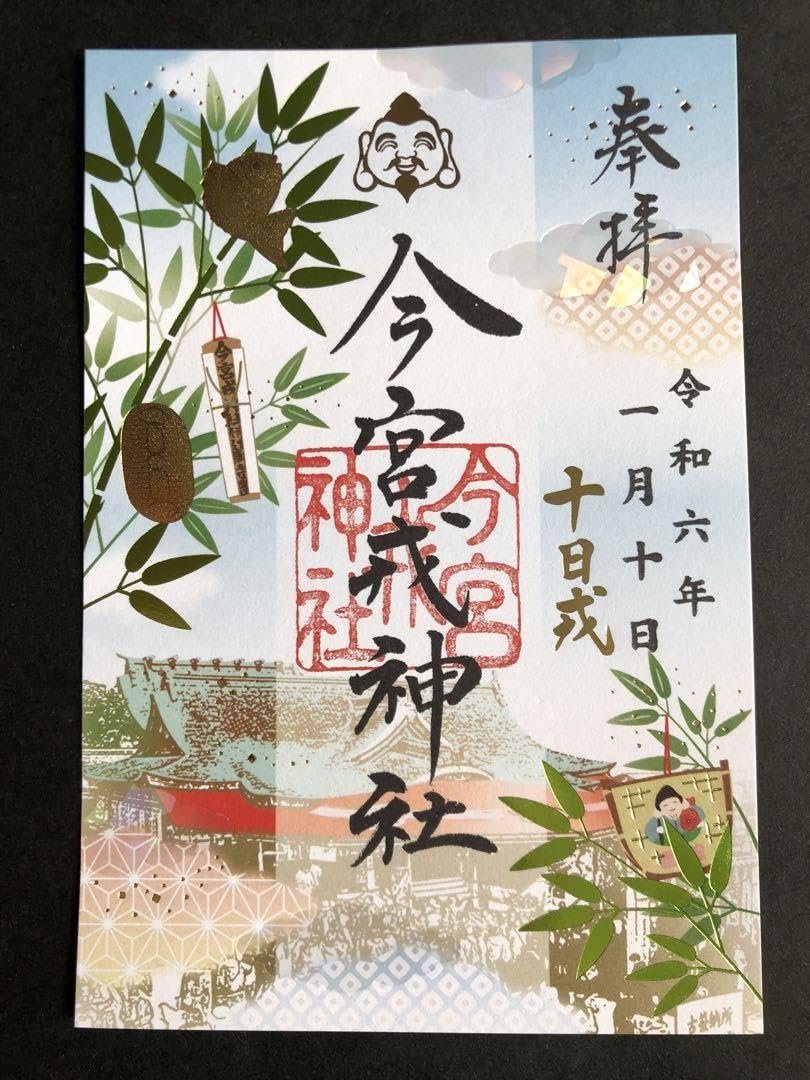 奉拝
令和六年
一月十日
十日戎
今宮戎神社
今宮
戎
神社
今宮戎